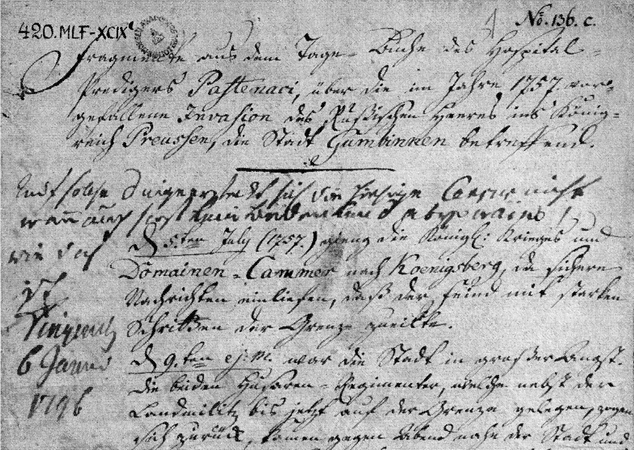 420. MLF-XCIX
No. 136. c.
Fragmente aus dem Tage-Buche des Hospital
Predigers Pastenaci, über die im Jahre 1757. vor-
gefallene Invasion des Rußischen Heeres ins König-
reich Preussen, die Stadt Gumbinnen betreffend.
nicht
wie
6 Januar
1796
d. 5.ten July (1757.) gieng die Königl: Krieges und
Domainen-Cammer nach Koenigsberg, da sichere
Nachrichten einliefen, daß der Feind mit starken
Schritten der Grenze zueilte.
d. 9.ten ej. m. war die Stadt in großer Angst.
die beiden Husaren-Regimenter, welche nebst der
Landmilitz bis jetzt auf der Grenze gelegen, zogen
sich zurück, kamen gegen Abend nahe der Stadt und